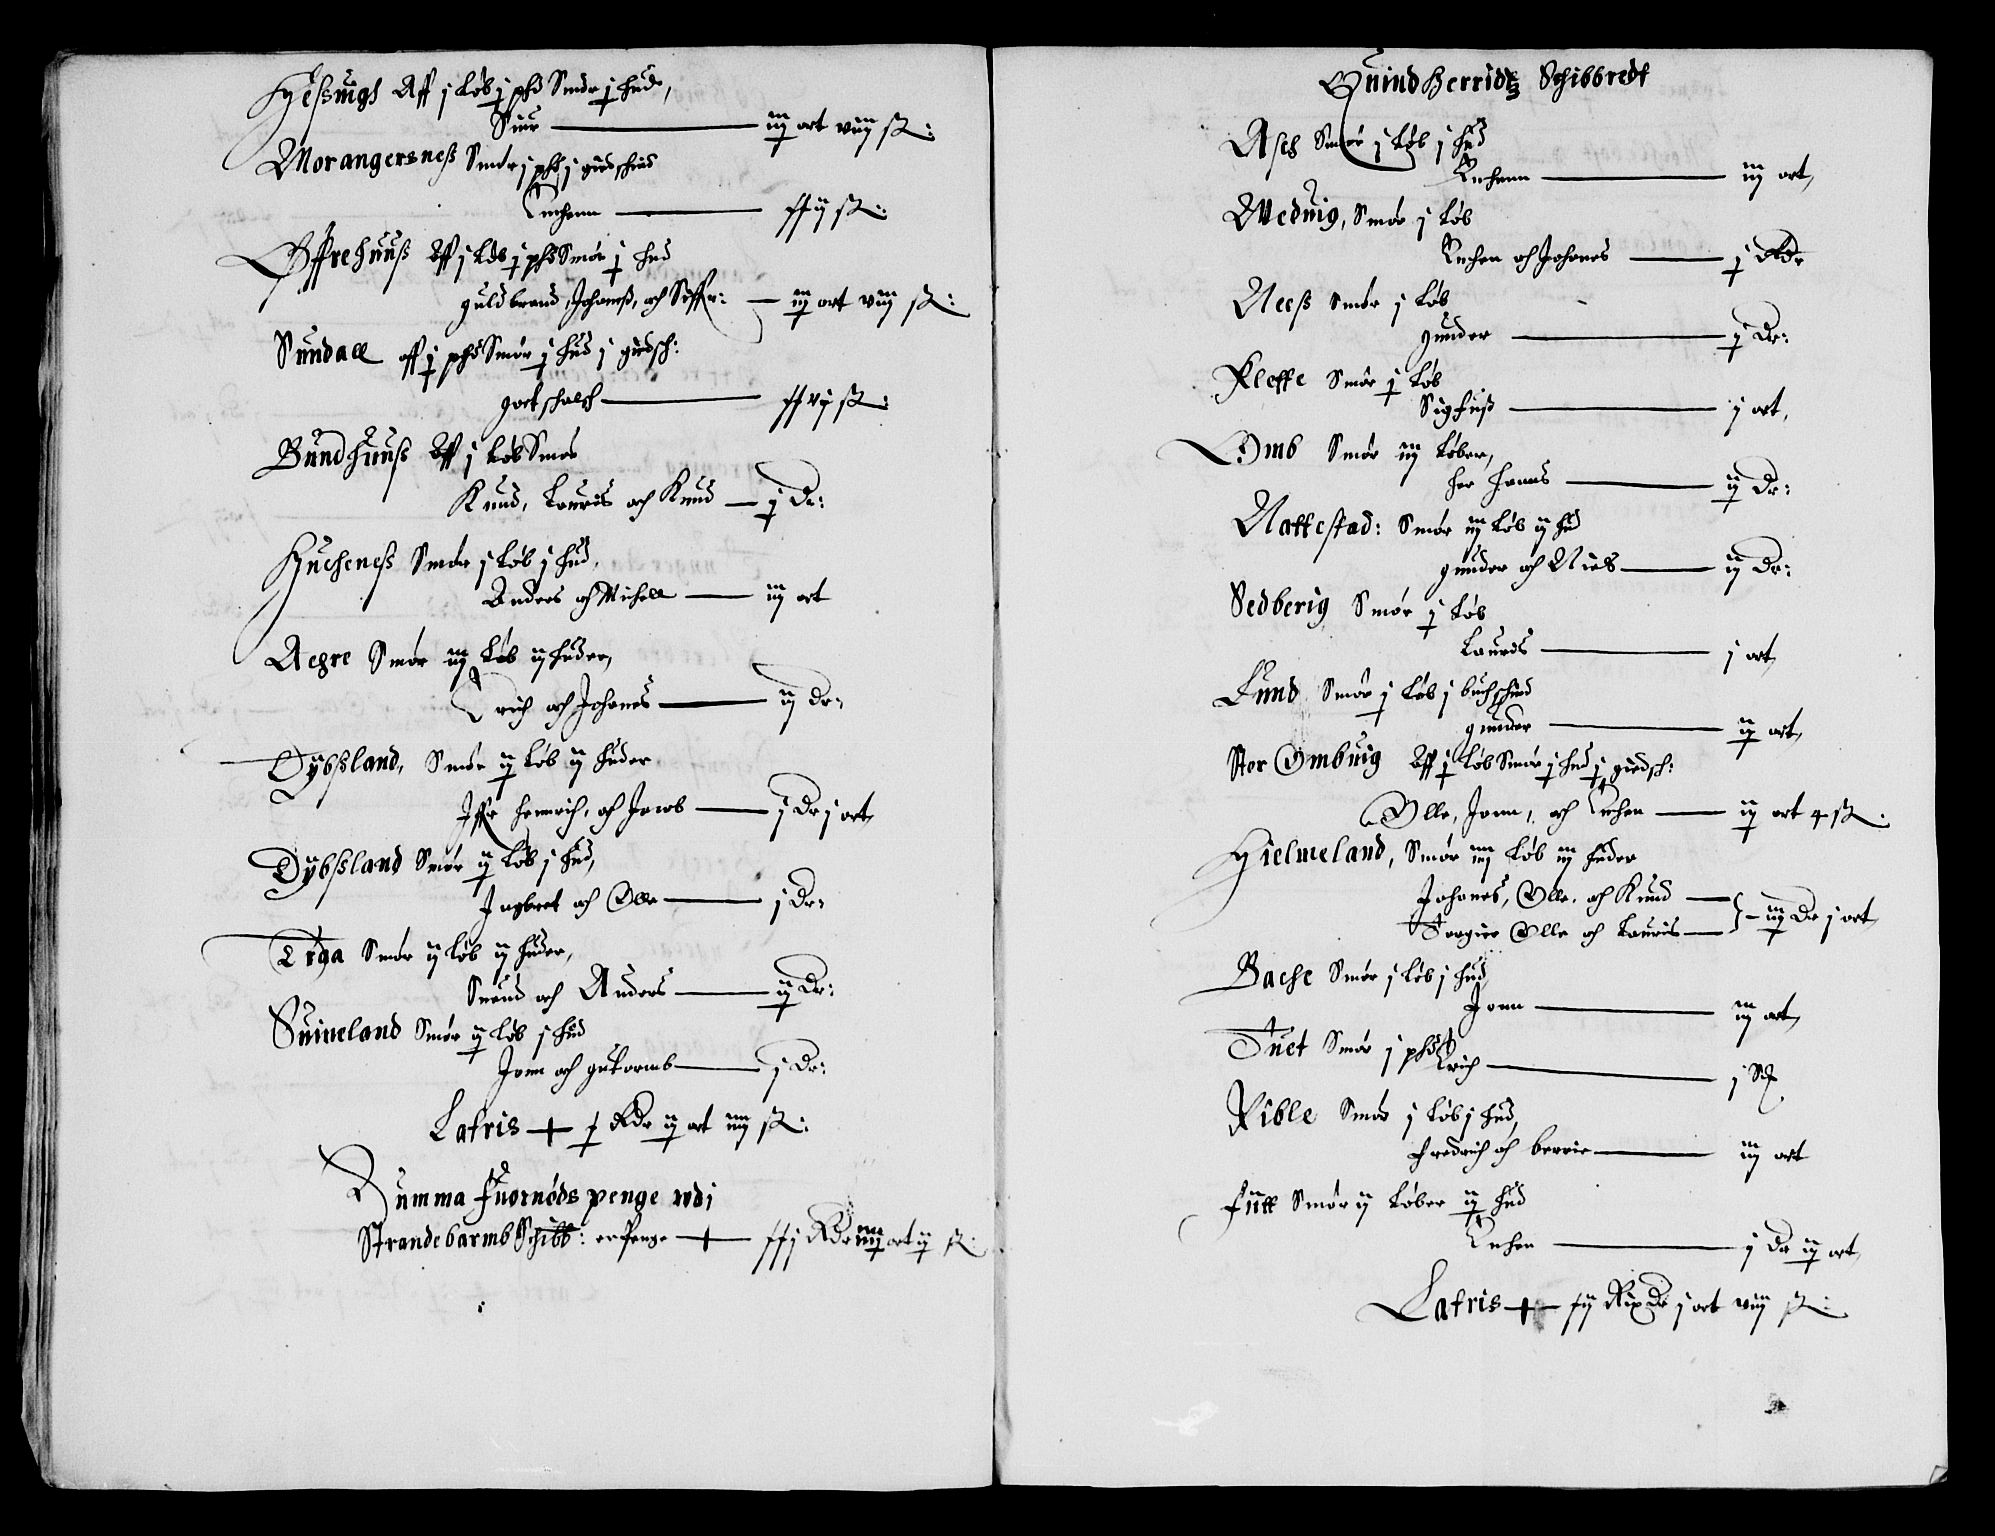 Heßuigh Aff j Løb j phd Smør j hud,
Siur — iij ort viij ß:
Morangersneß Smør j phd j giedschind
Enchenn — ß:
Offrehuuß Aff j Løb j phd Smør j hud
guldbrand, Johanß, och Siffr: — iij ort viij ß:
Sundall aff j phd Smør j hud j giedsch:
gortschalch — ß:
Bundhuuß Aff j Løb Smør
Knud, Lauris och Knud — j Dr:
Hucheneß Smør j Løb j hud,
Anders och Michell — iij ort
Aegre Smør iij Løb ij huder,
Erich och Johanes — ij Dr:
Dybßland, Smør ij Løb ij huder
Iffr Henrich, och Jacob — j Dr j ort,
Dybßland Smør ij Løb j hud,
Ingbret och Olle — j Dr:
Trga Smør ij Løb ij huder,
Suend och Anders — ij Dr:
Suineland Smør ij Løb j hud
Jonn och guttormb — j Dr:
Latris — Rdr ij ort iiij ß:
Summa Fuornøds penge udi
Strandebarmb Schibb: erPenge — Rdr iiij ort ij ß:
Quindherridtz Schibbredt
Asch Smør j Løb j hud
Enchenn — iij ort,
Weduig, Smør j Løb
Enchen och Johanes — j Rdr
Neeß Smør j Løb
gunder — j Dr:
Kleffe Smør j Løb
Sighuß — j ort,
Omb Smør iij Løber,
her Hanns — ij Dr:
Nattestad: Smør iij Løb ij hud
gunder och Niels — ij Dr:
Sedberig Smør j Løb
Laurds — j ort,
Lund Smør j Løb j buchschind
gunder — ij ort,
Ster Ombuig Aff j Løb Smør j hud j giedsch:
Olle, Jonn, och Enchen — ij ort 4 ß:
Hielmeland, Smør iiij Løb iij huder
Johanes, Olle, och Knud —
Torgier Olle och Lauris — } — iij Dr j ort
Bache Smør j Løb j hud,
Jonn — iij ort,
Tuet Smør j phd
Erich — j
Rible Smør j Løb j hud,
Fredrich och berrie — iij ort
Futt Smør ij Løber ij hud
Enchen — j Dr ij ort,
Latris — RixDr j ort viij ß: